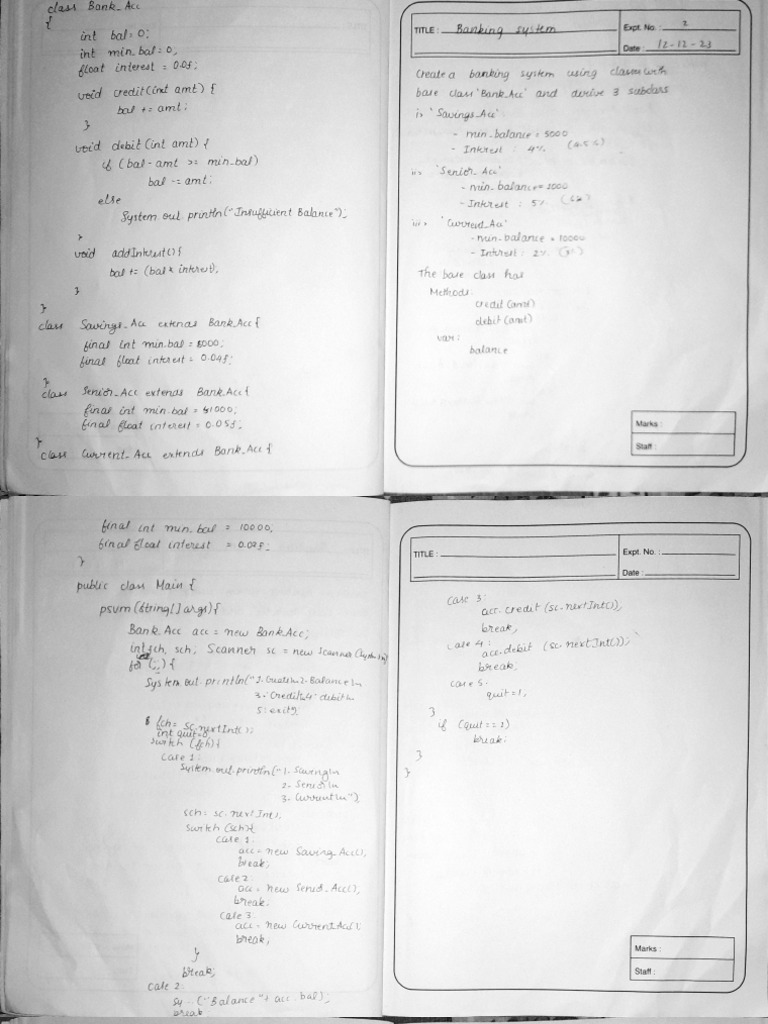 class Bank_Acc
{
int bal=0;
int min_bal=0;
float interest = 0.0f;
void credit(int amt) {
bal += amt;
}
void debit(int amt) {
if (bal-amt >= min_bal)
bal -= amt;
else
System.out.println("Insufficient Balance");
}
void addInterest(){
bal += (bal*interest);
}
}
class Savings_Acc extends Bank_Acc{
final int min_bal = 5000;
final float interest = 0.04f;
}
class Senior_Acc extends Bank_Acc{
final int min_bal = 1000;
final float interest = 0.05f;
}
class Current_Acc extends Bank_Acc {
TITLE : Banking system
Expt. No. : 2
Date : 12-12-23
Create a banking system using classes with
base class 'Bank_Acc' and derive 3 subclass
i> 'Savings_Acc'
- min_balance = 5000
- Interest : 4% (4.5%)
ii> 'Senior_Acc'
- min_balance = 1000
- Interest : 5%
iii> 'Current_Acc'
- min_balance = 10000
- Interest : 2%
The base class has
Methods:
credit(amt)
debit(amt)
var:
balance
Marks :
Staff :
final int min_bal = 10000;
final float interest = 0.02f;
}
public class Main {
psvm(String[] args){
Bank_Acc acc = new Bank_Acc;
int fch, sch, Scanner sc = new Scanner
for (;;) {
System.out.println("1.Create\n2.Balance\n
3.Credit\n4.debit\n
5.exit");
fch= sc.nextInt();
int quit=0;
switch (fch){
case 1:
System.out.println("1.Saving\n
2.Senior\n
3.Current\n");
sch= sc.nextInt();
switch (sch){
case 1:
acc = new Saving_Acc();
break;
case 2:
acc = new Senior_Acc();
break;
case 3:
acc = new Current_Acc();
break;
}
break;
case 2:
sy...("Balance"+ acc.bal);
break
TITLE :
Expt. No. :
Date :
case 3:
acc.credit (sc.nextInt());
break;
case 4:
acc.debit (sc.nextInt());
break;
case 5:
quit=1;
}
if (quit==1)
break;
}
}
Marks :
Staff :